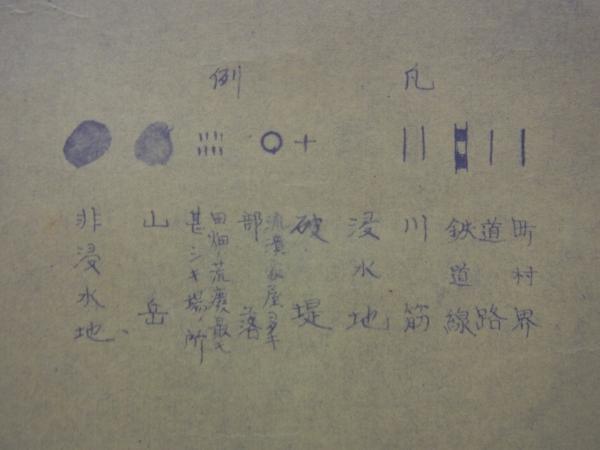 凡例
町村界
道路
鉄道線
川筋
浸水地
破堤
流潰家屋
部落
田畑荒廃最モ
甚シキ場所
山岳
非浸水地